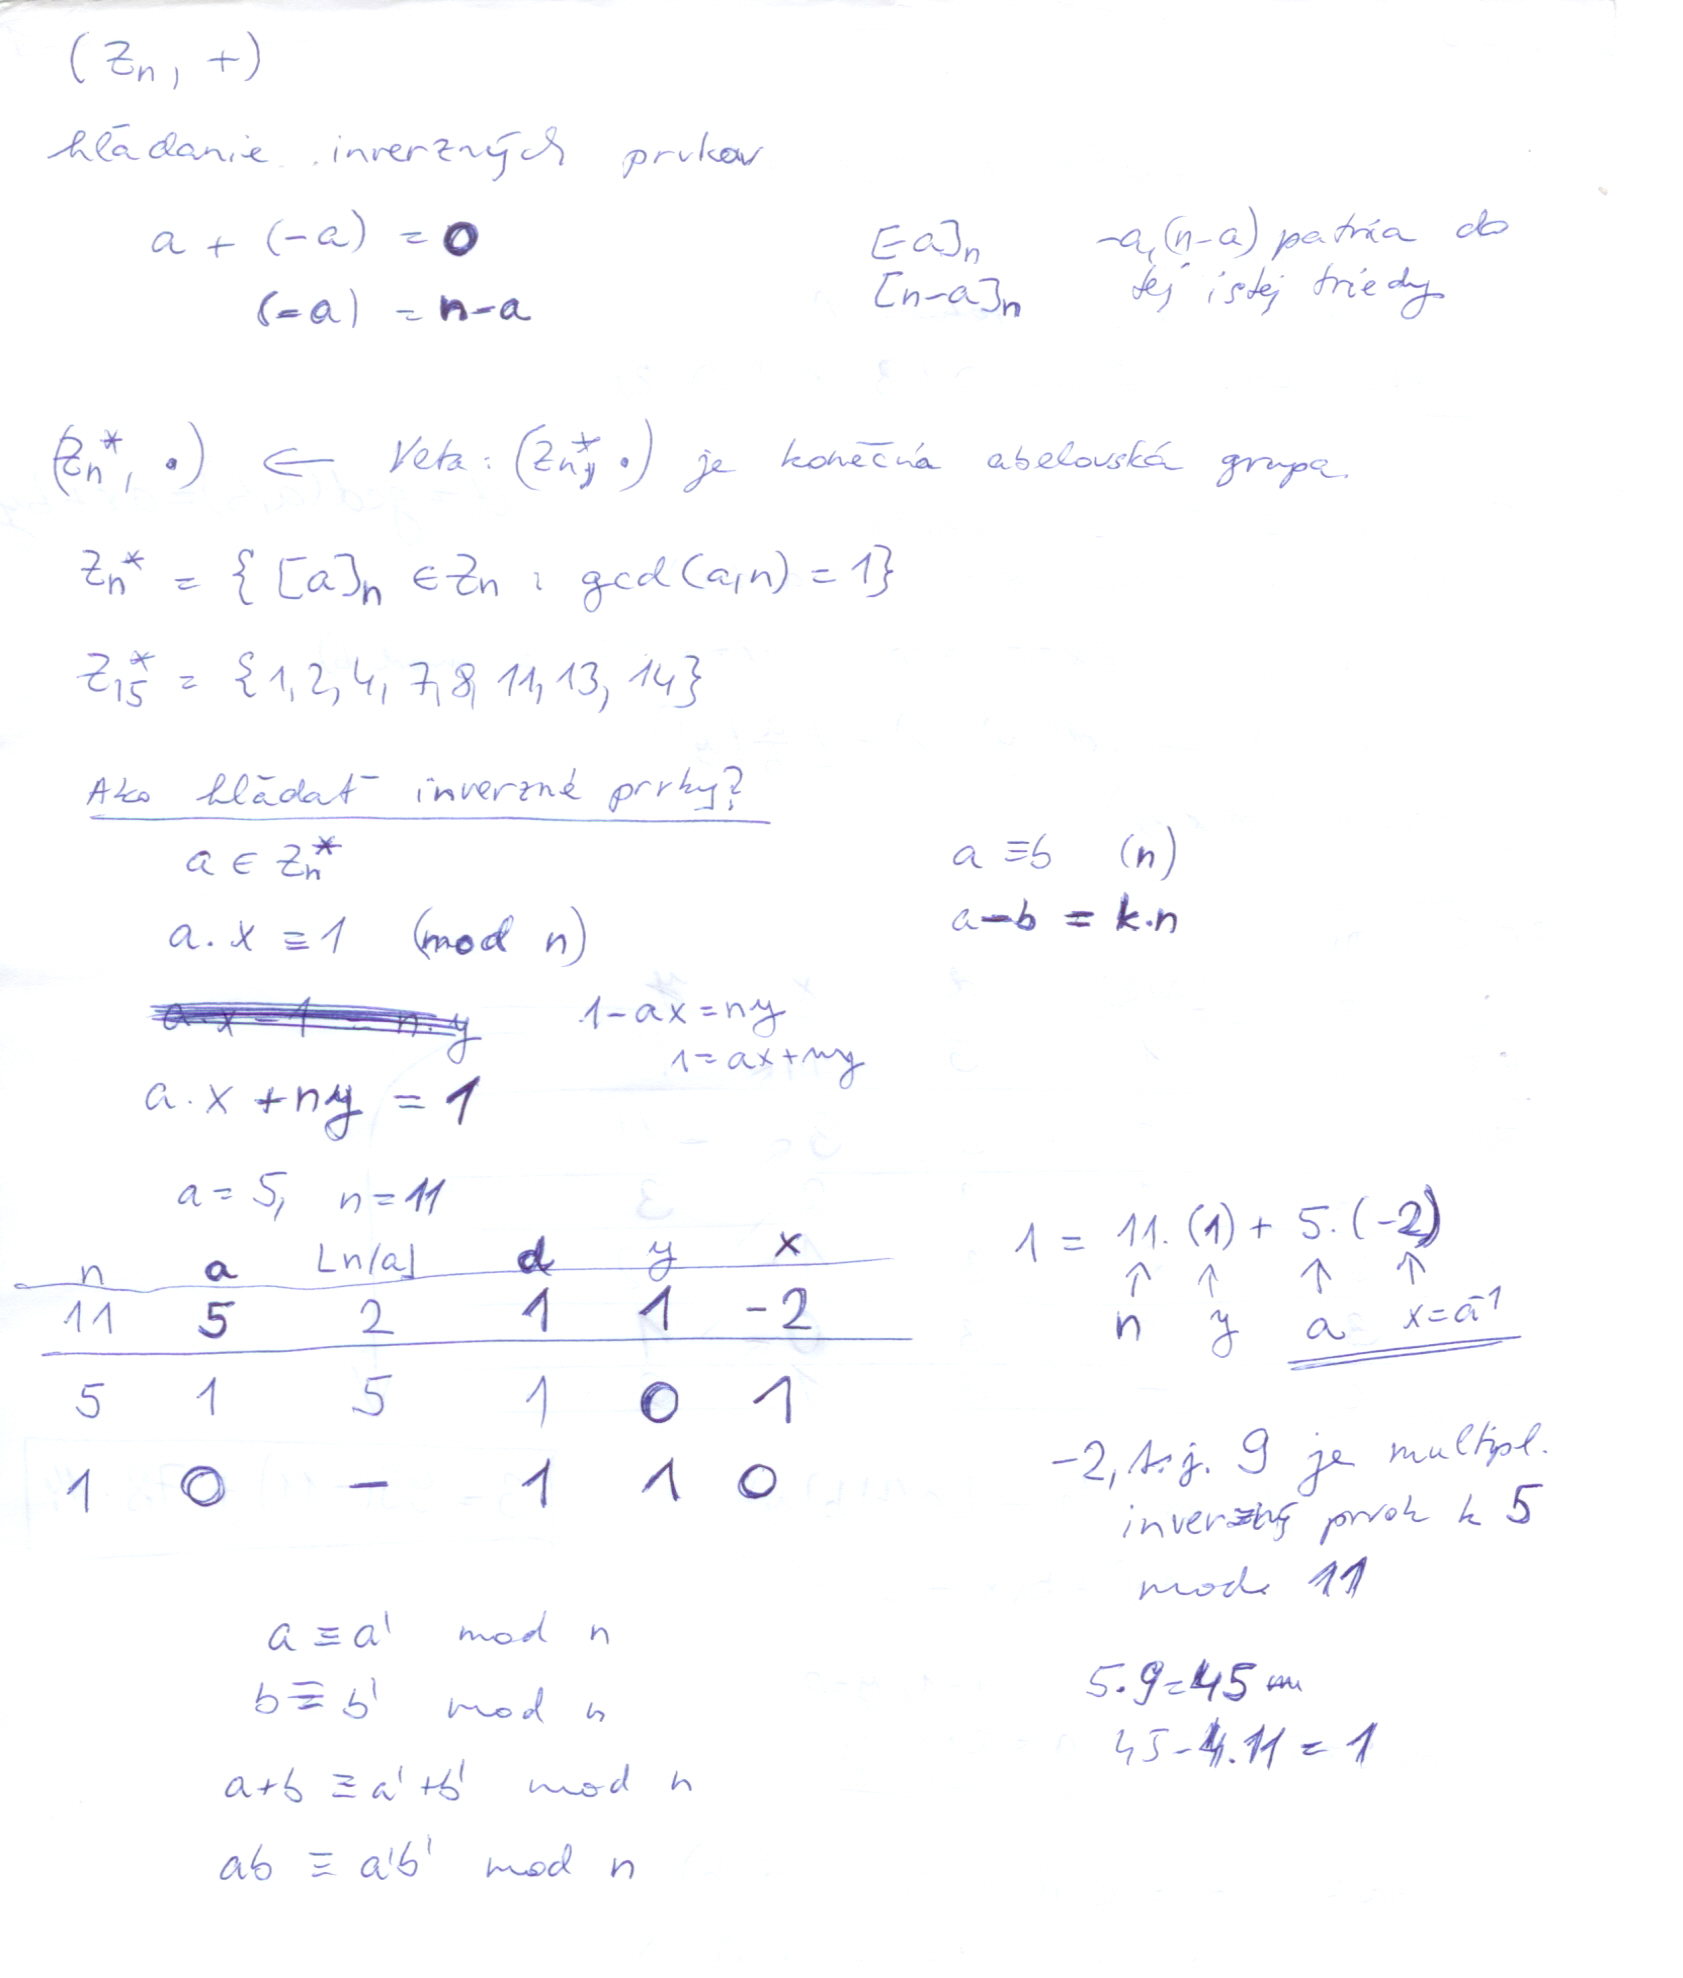 (Zn, +)
hľadanie inverzných prvkov
a + (-a) = 0
(-a) = n-a
[-a]n -a, (n-a) patria do
[n-a]n tej istej triedy
(Zn*, ·) ← Veta: (Zn*, ·) je konečná abelovská grupa.
Zn* = { [a]n ∈ Zn : gcd(a,n) = 1}
Z15* = {1, 2, 4, 7, 8, 11, 13, 14}
Ako hľadať inverzné prvky?
a ∈ Zn*
a ≡ b (n)
a · x ≡ 1 (mod n)
a-b = k.n
a·x - 1 = n·y
1-ax = ny
1 = ax+ny
a · x + ny = 1
a = 5, n = 11
n a ⌊n/a⌋ d y x
11 5 2 1 1 -2
5 1 5 1 0 1
1 0 - 1 1 0
1 = 11. (1) + 5. (-2)
↑ ↑ ↑ ↑
n y a x = a⁻¹
-2, t.j. 9 je multipl.
inverzný prvok k 5
mod 11
5.9 = 45
45 - 4.11 = 1
a ≡ a' mod n
b ≡ b' mod n
a+b ≡ a'+b' mod n
ab ≡ a'b' mod n